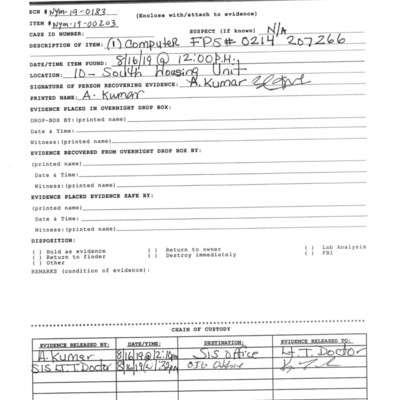 ECN # NYM-19-0183 (Enclose with/attach to evidence)
ITEM # NYM-19-00203
CASE ID NUMBER: SUSPECT (If known) N/A
DESCRIPTION OF ITEM: (1) Computer FPS# 0214 207266
DATE/TIME ITEM FOUND: 8/16/19 @ 12:00 P.M.
LOCATION: 10-South Housing Unit
SIGNATURE OF PERSON RECOVERING EVIDENCE: A. Kumar
PRINTED NAME: A. Kumar
EVIDENCE PLACED IN OVERNIGHT DROP BOX:
DROP-BOX BY: (printed name)
Date & Time:
Witness: (printed name)
EVIDENCE RECOVERED FROM OVERNIGHT DROP BOX BY:
(printed name)
Date & Time:
Witness: (printed name)
EVIDENCE PLACED EVIDENCE SAFE BY:
(printed name)
Date & Time:
Witness: (printed name)
DISPOSITION:
( ) Hold as evidence ( ) Return to owner ( ) Lab Analysis
( ) Return to finder ( ) Destroy immediately ( ) FBI
( ) Other
REMARKS (condition of evidence):
CHAIN OF CUSTODY
EVIDENCE RELEASED BY: DATE/TIME: DESTINATION: EVIDENCE RELEASED TO:
A. Kumar 8/16/19 @ 2:10pm SIS Office Lt. T. Doctor
SIS Lt. T. Doctor 8/16/19 OIG